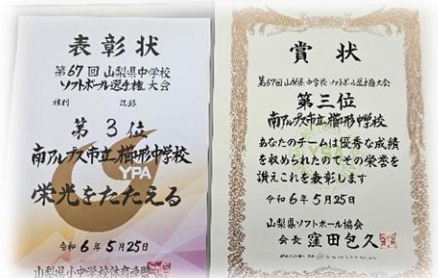 表彰状
第67回 山梨県中学校
ソフトボール選手権大会
種別 記録
第3位
南アルプス市立櫛形中学校
YPA
栄光をたたえる
令和6年5月25日
山梨県小中学校体育連盟
賞状
第67回 山梨県中学校 ソフトボール選手権大会
第三位
南アルプス市立櫛形中学校
あなたのチームは優秀な成績
を収められたのでその栄誉を
讃えこれを表彰します
令和6年5月25日
山梨県ソフトボール協会
会長 窪田包久